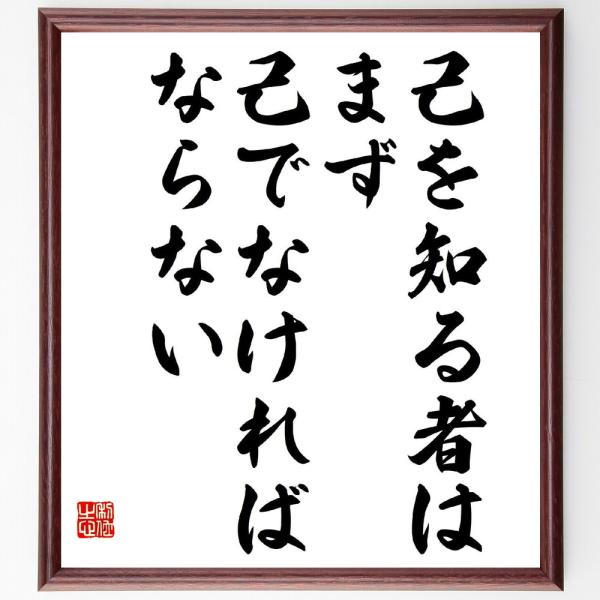 己を知る者は
まず
己でなければ
ならない